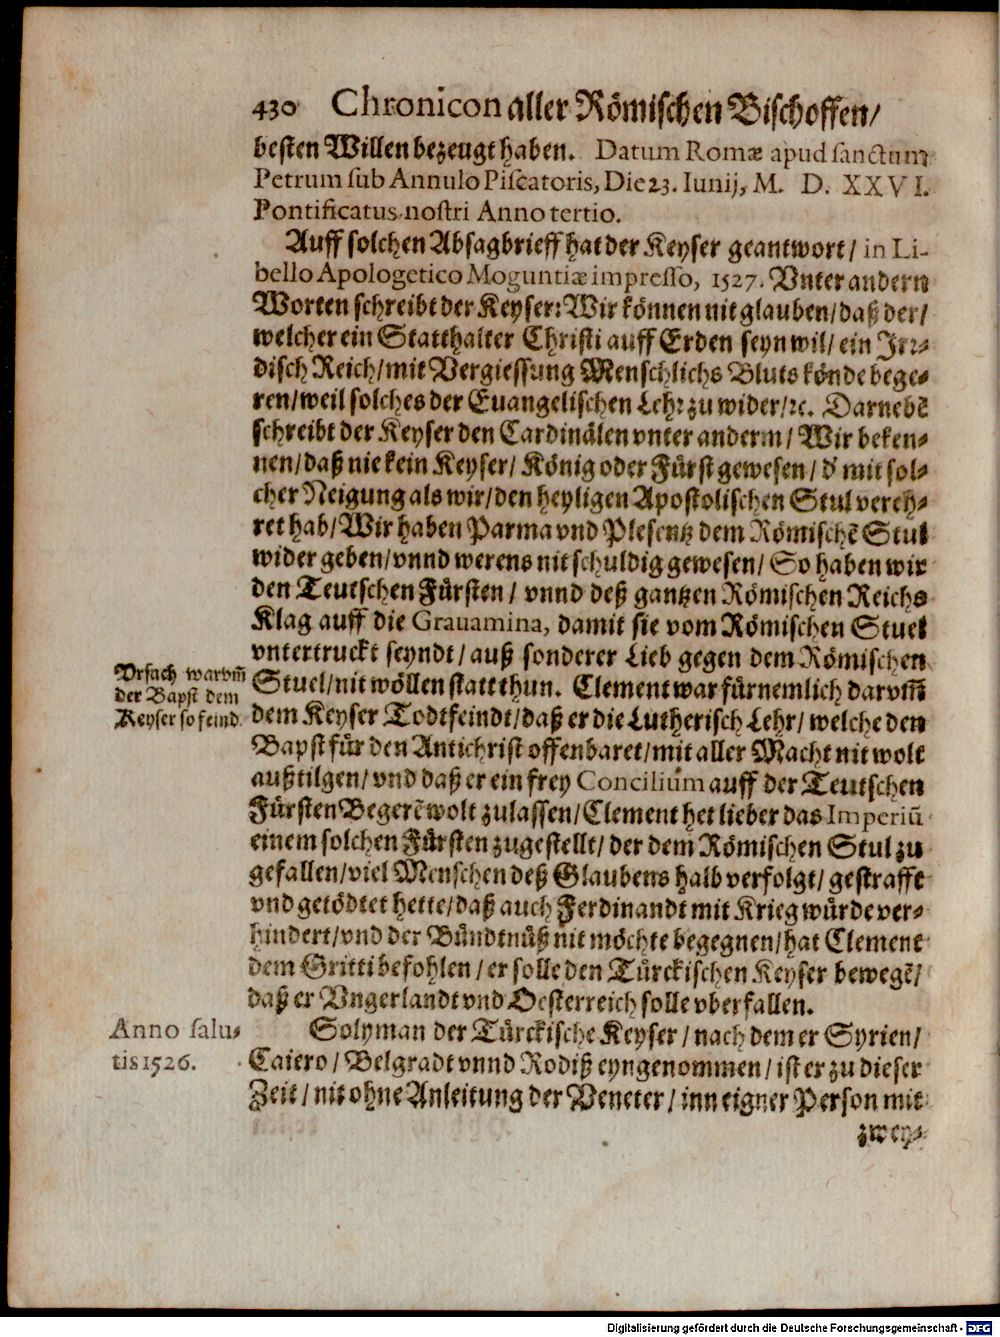 430 Chronicon aller Römischen Bischoffen/
besten Willen bezeugt haben. Datum Romæ apud sanctum
Petrum sub Annulo Piscatoris, Die 23. Iunij, M. D. XXVI.
Pontificatus nostri Anno tertio.
Auff solchen Absagbrieff hat der Keyser geantwort/ in Li-
bello Apologetico Moguntiæ impresso, 1527. Vnter andern
Worten schreibt der Keyser: Wir können nit glauben/ daß der/
welcher ein Statthalter Christi auff Erden seyn wil/ ein Irr-
disch Reich/ mit Vergiessung Menschlichs Bluts könde bege-
ren/ weil solches der Euangelischen Lehr zu wider/ ꝛc. Darnebē
schreibt der Keyser den Cardinälen vnter anderm/ Wir beken-
nen/ daß nie kein Keyser/ König oder Fürst gewesen/ d' mit sol-
cher Neigung als wir/ den heyligen Apostolischen Stul vereh-
ret hab/ Wir haben Parma vnd Plesentz dem Römischē Stul
wider geben/ vnnd werens nit schuldig gewesen/ So haben wir
den Teutschen Fürsten/ vnnd deß gantzen Römischen Reichs
Klag auff die Grauamina, damit sie vom Römischen Stuel
vntertruckt seyndt/ auß sonderer Lieb gegen dem Römischen
Stuel/ nit wöllen statt thun. Clement war fürnemlich darvm̃
dem Keyser Todtfeindt/ daß er die Lutherisch Lehr/ welche den
Bapst für den Antichrist offenbaret/ mit aller Macht nit wolt
außtilgen/ vnd daß er ein frey Concilium auff der Teutschen
Fürsten Begerē wolt zulassen/ Clement het lieber das Imperiū
einem solchen Fürsten zugestellt/ der dem Römischen Stul zu
gefallen/ viel Menschen deß Glaubens halb verfolgt/ gestrafft
vnd getödtet hette/ daß auch Ferdinandt mit Krieg würde ver-
hindert/ vnd der Bündtnüß nit möchte begegnen/ hat Clement
dem Gritti befohlen/ er solle den Türckischen Keyser bewegē/
daß er Vngerlandt vnd Oesterreich solle vberfallen.
Vrsach warvm̃
der Bapst dem
Keyser so feind.
Solyman der Türckische Keyser/ nach dem er Syrien/
Caiero/ Belgradt vnnd Rodiß eyngenommen/ ist er zu dieser
Zeit/ nit ohne Anleitung der Veneter/ inn eigner Person mit
zwey-
Anno salu-
tis 1526.
Digitalisierung gefördert durch die Deutsche Forschungsgemeinschaft - DFG